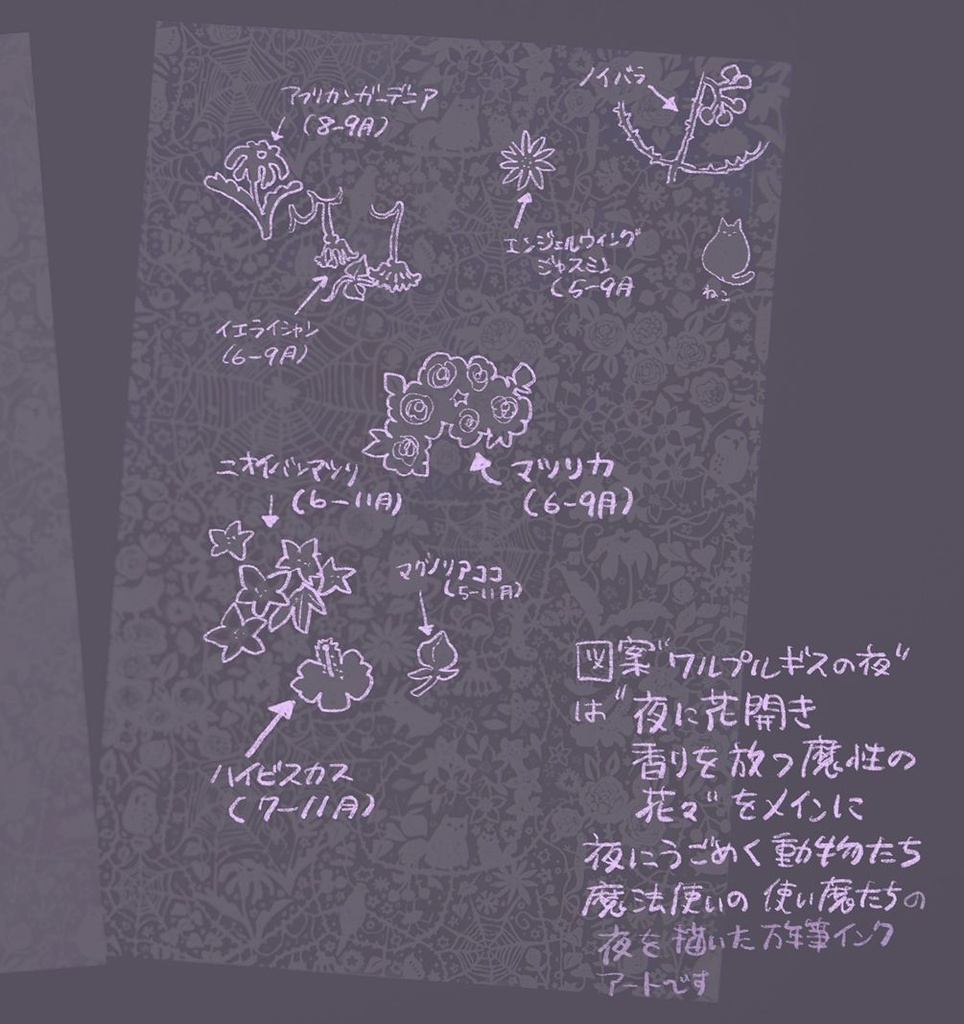 アフリカンガーデニア
(8-9月)
ノイバラ
エンジェルウイング
ジャスミン
(5-9月
ねこ
イエライシャン
(6-9月)
ニオイバンマツリ
(6-11月)
マツリカ
(6-9月)
マグノリアココ
(5-11月)
ハイビスカス
(7-11月)
図案"ワルプルギスの夜"
は"夜に花開き
香りを放つ魔性の
花々"をメインに
夜にうごめく動物たち
魔法使いの使い魔たちの
夜を描いた万年筆インク
アートです